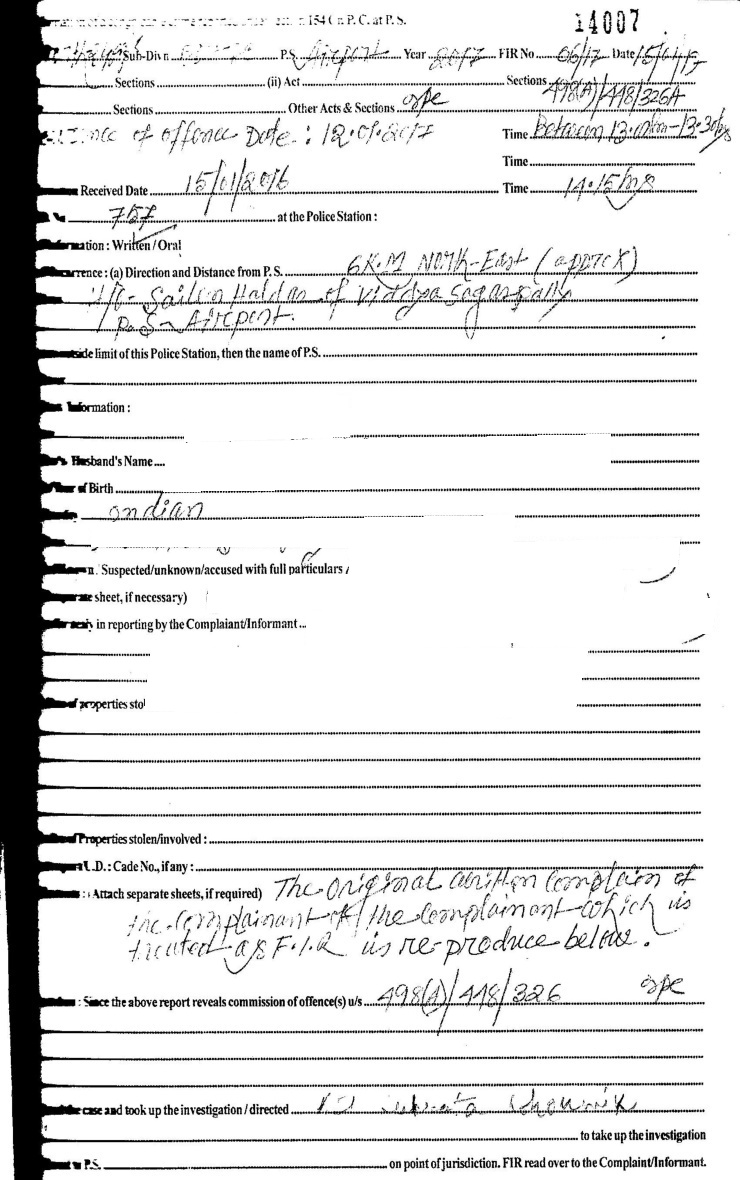 154 Cr. P. C. at P. S.
14007
Sub-Divn P.S. Airport Year 2017 FIR No 06/17 Date 15/01/17
Sections (ii) Act Sections 498(A)/448/326A
Sections Other Acts & Sections IPC
of offence Date : 12.01.2017 Time Between 13.00hrs-13.30hrs
Time
Received Date 15/01/2016 Time 14.15 hrs
757 at the Police Station :
Written / Oral
(a) Direction and Distance from P. S. 6 K.M North-East (approx)
Sailen Haldar of Viddya Sagarpally
P.S - Airport.
limit of this Police Station, then the name of P.S.
Information :
Husband's Name
of Birth
Indian
Suspected/unknown/accused with full particulars
sheet, if necessary)
in reporting by the Complaiant/Informant
properties stol
Properties stolen/involved :
U.D. : Cade No., if any :
: (Attach separate sheets, if required) The original written complain of
the complainant of the complainant which is
treated as F.I.R is re-produce below.
: Since the above report reveals commission of offence(s) u/s 498(A)/448/326 IPC
the case and took up the investigation / directed
to take up the investigation
P.S. on point of jurisdiction. FIR read over to the Complaint/Informant.